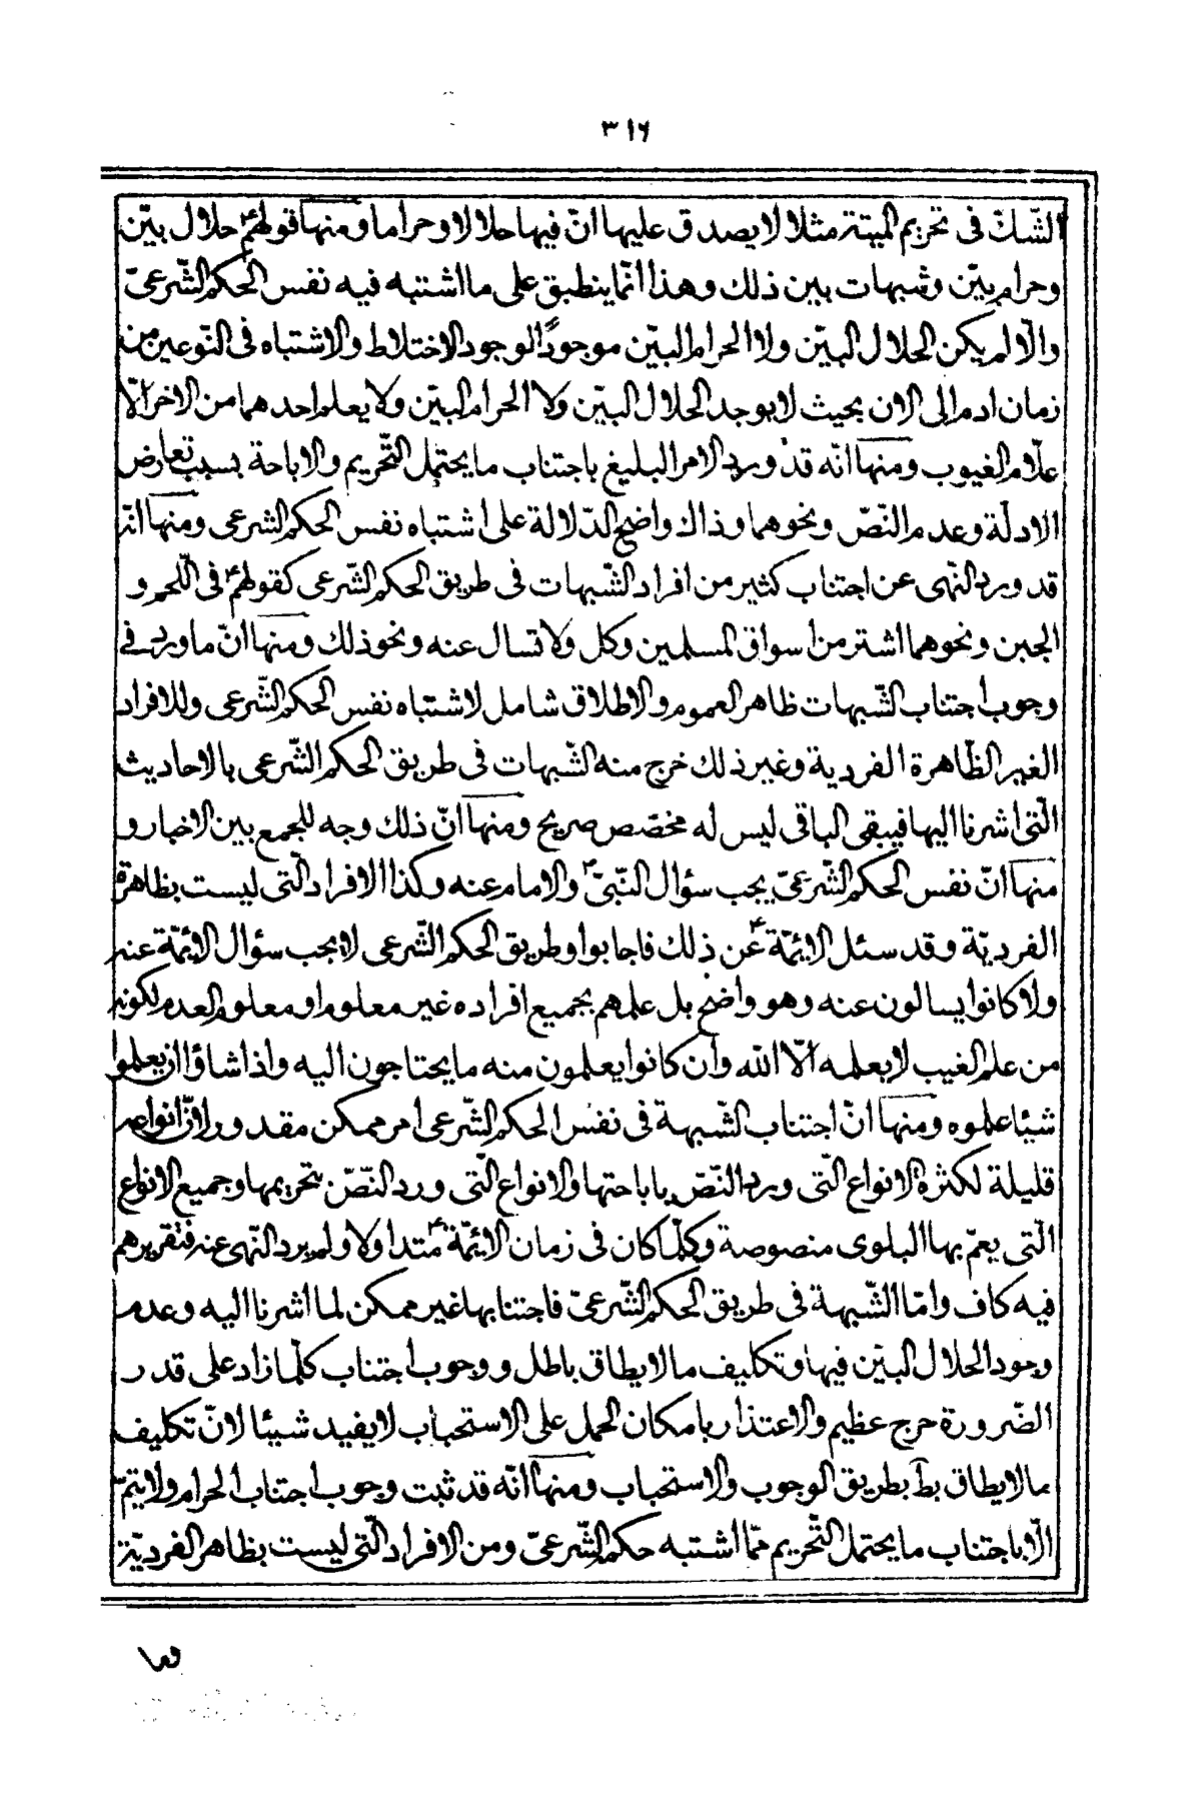 ٣١٦
الشّك فى تحريم الميتة مثلا لا يصدق عليها انّ فيها حلالا وحراما ومنها قولهمؑ حلال بيّن
وحرام بيّن وشبهات بين ذلك وهذا انّما ينطبق على ما اشتبه فيه نفس الحكم الشّرعىّ
والّا لم يكن الحلال البيّن ولا الحرام البيّن موجودًا لوجود الاختلاط والاشتباه فى النّوعين من
زمان ادم الى الان بحيث لا يوجد الحلال البيّن ولا الحرام البيّن ولا يعلم احدهما من الاخر الّا
علّام الغيوب ومنها انّه قد ورد الامر البليغ باجتناب ما يحتمل التّحريم والاباحة بسبب تعارض
الادلّة وعدم النّصّ ونحوهما وذاك واضح الدّلالة على اشتباه نفس الحكم الشرعى ومنها انّه
قد ورد النّهى عن اجتناب كثير من افراد الشّبهات فى طريق الحكم الشّرعى كقولهمؑ فى اللّحم و
الجبن ونحوهما اشتر من اسواق المسلمين وكل ولا تسال عنه ونحو ذلك ومنها انّ ما ورد فى
وجوب اجتناب الشّبهات ظاهر العموم والاطلاق شامل لاشتباه نفس الحكم الشّرعى وللافراد
الغير الظّاهرة الفردية وغير ذلك خرج منه الشّبهات فى طريق الحكم الشّرعى بالاحاديث
الّتى اشرنا اليها فيبقى الباقى ليس له مخصّص صريح ومنها انّ ذلك وجه للجمع بين الاخبار و
منها انّ نفس الحكم الشّرعىّ يجب سؤال النّبىّؐ والامام عنه وكذا الافراد الّتى ليست بظاهرة
الفرديّة وقد سئل الائمّةؑ عن ذلك فاجابوا وطريق الحكم الشّرعى لا يجب سؤال الائمّة عنه
ولا كانوا يسالون عنه وهو واضح بل علمهم بجميع افراده غير معلوم او معلوم العدم لكونه
من علم الغيب لا يعلمه الّا الله وان كانوا يعلمون منه ما يحتاجون اليه واذا شاؤا ان يعلموا
شيئا علموه ومنها انّ اجتناب الشّبهة فى نفس الحكم الشّرعى امر ممكن مقدور لانّ انواعه
قليلة لكثرة الانواع الّتى ورد النّصّ باباحتها والانواع الّتى ورد النّصّ بتحريمها وجميع الانواع
الّتى يعمّ بها البلوى منصوصة وكلّما كان فى زمان الائمّةؑ متداولا ولم يرد النّهى عنه فتقريرهم
فيه كاف وامّا الشّبهة فى طريق الحكم الشّرعىّ فاجتنابها غير ممكن لما اشرنا اليه وعدم
وجود الحلال البيّن فيها وتكليف ما لا يطاق باطل ووجوب اجتناب كلّما زاد على قدر
الضّرورة حرج عظيم والاعتذار بامكان الحمل على الاستحباب لا يفيد شيئا لانّ تكليف
ما لا يطاق بط بطريق الوجوب والاستحباب ومنها انّه قد ثبت وجوب اجتناب الحرام ولا يتمّ
الّا باجتناب ما يحتمل التّحريم ممّا اشتبه حكمه الشّرعىّ ومن الافراد الّتى ليست بظاهر الفرديّة